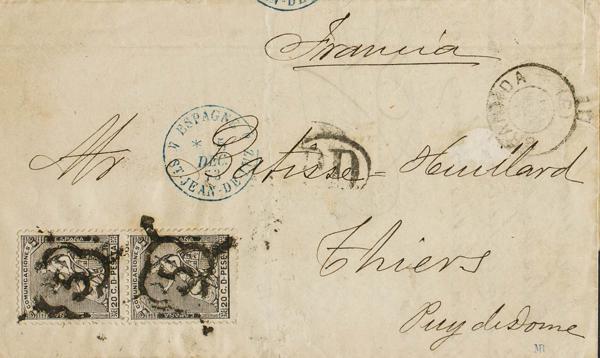 Francia
Mr Batisse=Huillard
Thiers
Puy de Dome
GRANADA
ESPAGNE
DEC
ST JEAN-DE-LUZ
PD
COMUNICACIONES
ESPAÑA
20 C. D PESETA
COMUNICACIONES
ESPAÑA
20 C. D PESETA